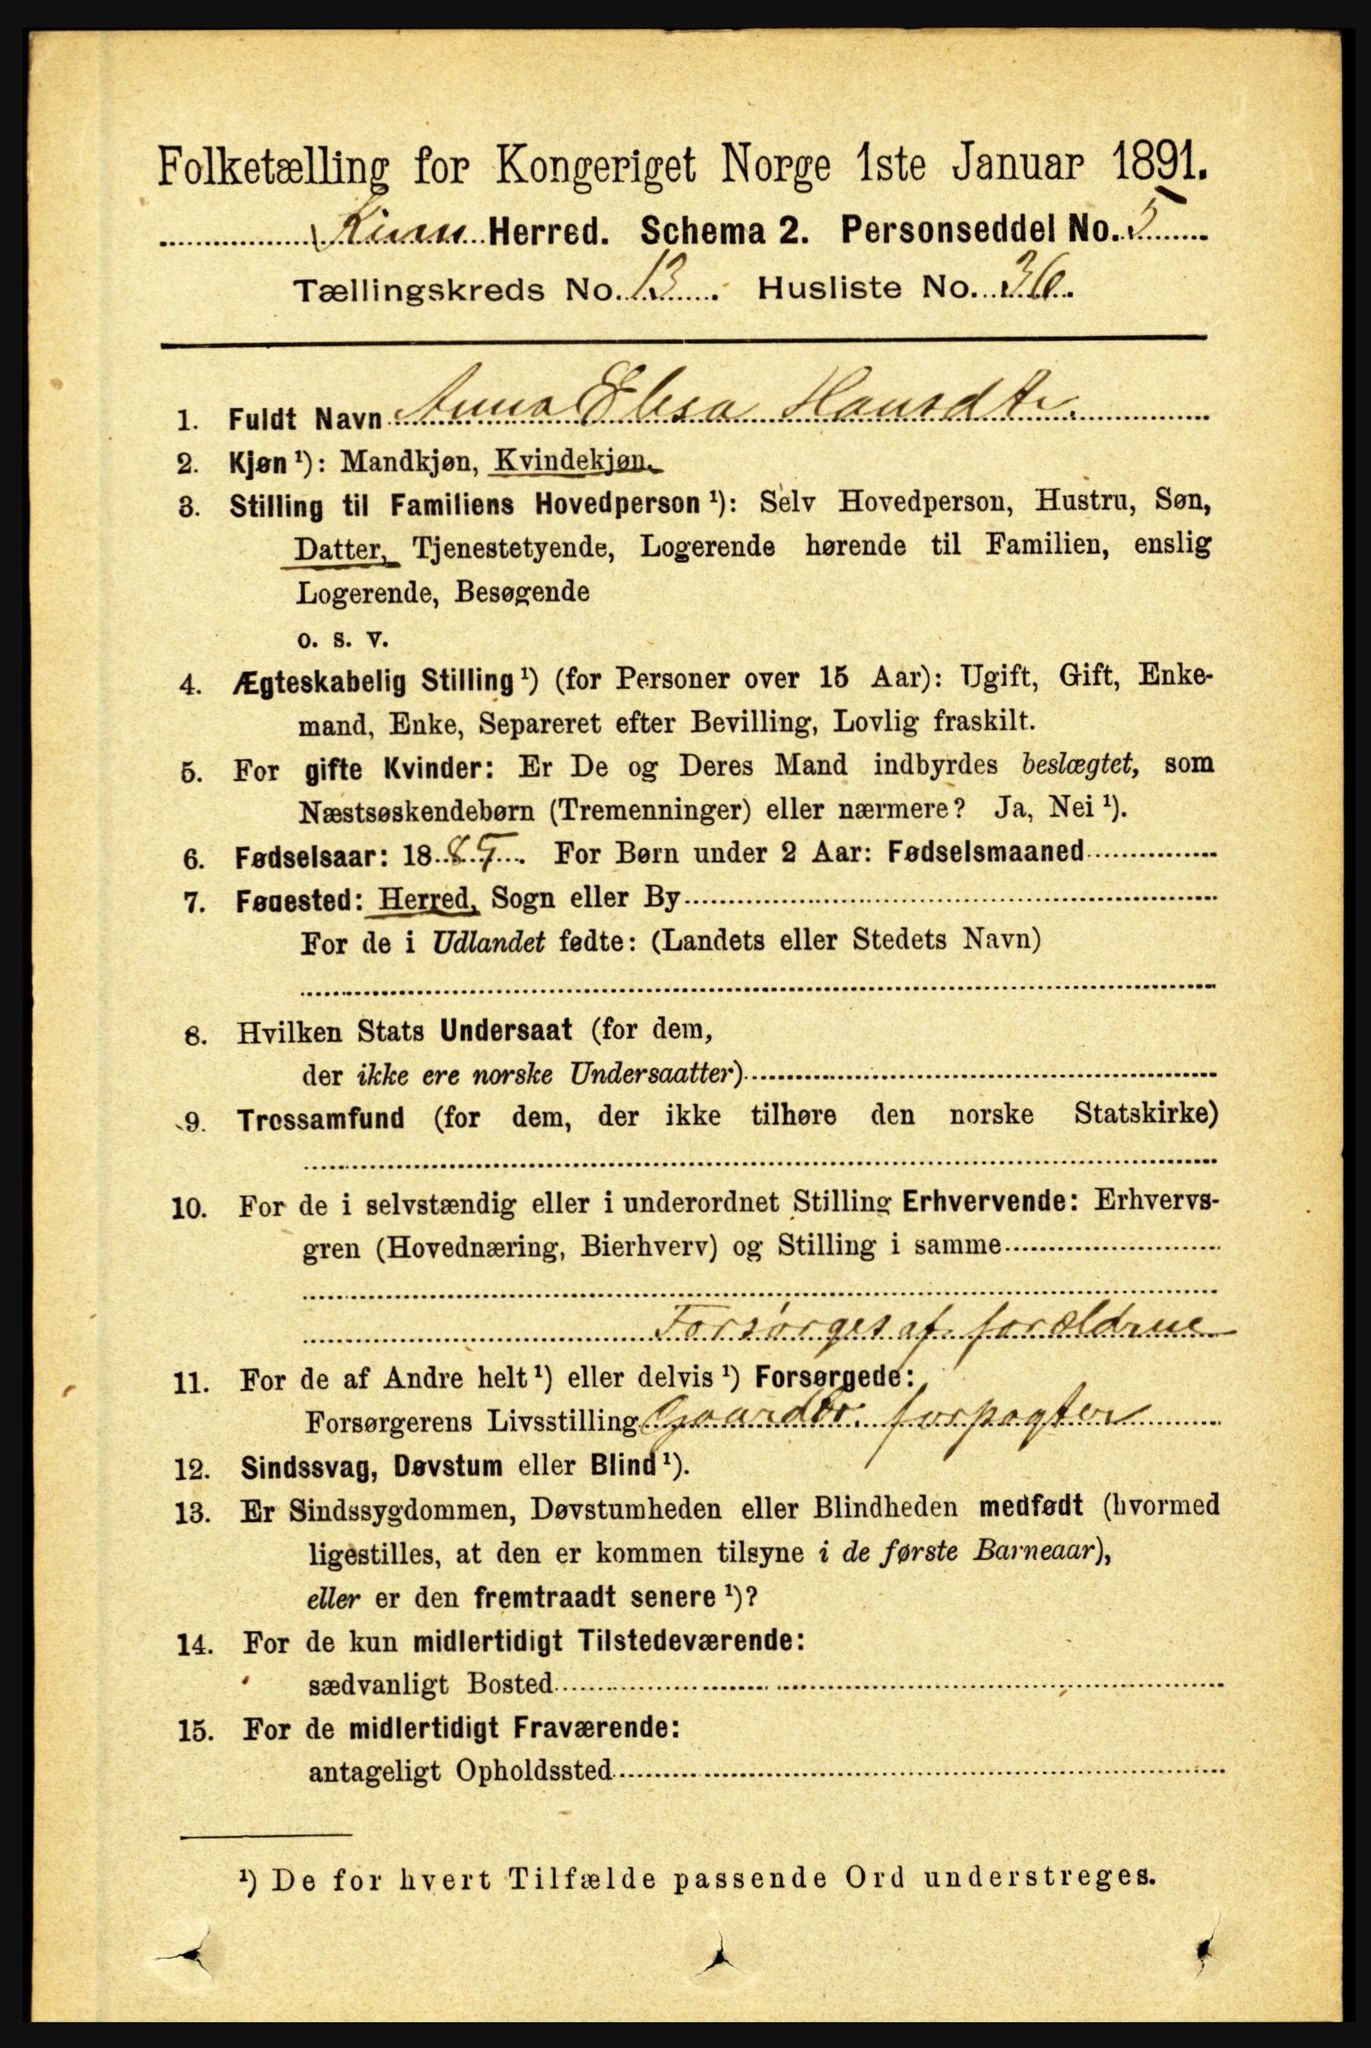 Folketælling for Kongeriget Norge 1ste Januar 1891.
Kinn Herred. Schema 2. Personseddel No. 5
Tællingskreds No. 13. Husliste No. 36.
1. Fuldt Navn Anna Elisa Hansdtr.
2. Kjøn ¹): Mandkjøn, Kvindekjøn.
3. Stilling til Familiens Hovedperson ¹): Selv Hovedperson, Hustru, Søn,
Datter, Tjenestetyende, Logerende hørende til Familien, enslig
Logerende, Besøgende
o. s. v.
4. Ægteskabelig Stilling ¹) (for Personer over 15 Aar): Ugift, Gift, Enke-
mand, Enke, Separeret efter Bevilling, Lovlig fraskilt.
5. For gifte Kvinder: Er De og Deres Mand indbyrdes beslægtet, som
Næstsøskendebørn (Tremenninger) eller nærmere? Ja, Nei ¹).
6. Fødselsaar: 18 . For Børn under 2 Aar: Fødselsmaaned
7. Fødested: Herred, Sogn eller By
For de i Udlandet fødte: (Landets eller Stedets Navn)
8. Hvilken Stats Undersaat (for dem,
der ikke ere norske Undersaatter)
9. Trossamfund (for dem, der ikke tilhøre den norske Statskirke)
10. For de i selvstændig eller i underordnet Stilling Erhvervende: Erhvervs-
gren (Hovednæring, Bierhverv) og Stilling i samme
Forsørges af forældrene
11. For de af Andre helt ¹) eller delvis ¹) Forsørgede:
Forsørgerens Livsstilling Gaardbr. forpagter
12. Sindssvag, Døvstum eller Blind ¹).
13. Er Sindssygdommen, Døvstumheden eller Blindheden medfødt (hvormed
ligestilles, at den er kommen tilsyne i de første Barneaar),
eller er den fremtraadt senere ¹)?
14. For de kun midlertidigt Tilstedeværende:
sædvanligt Bosted
15. For de midlertidigt Fraværende:
antageligt Opholdssted
¹) De for hvert Tilfælde passende Ord understreges.